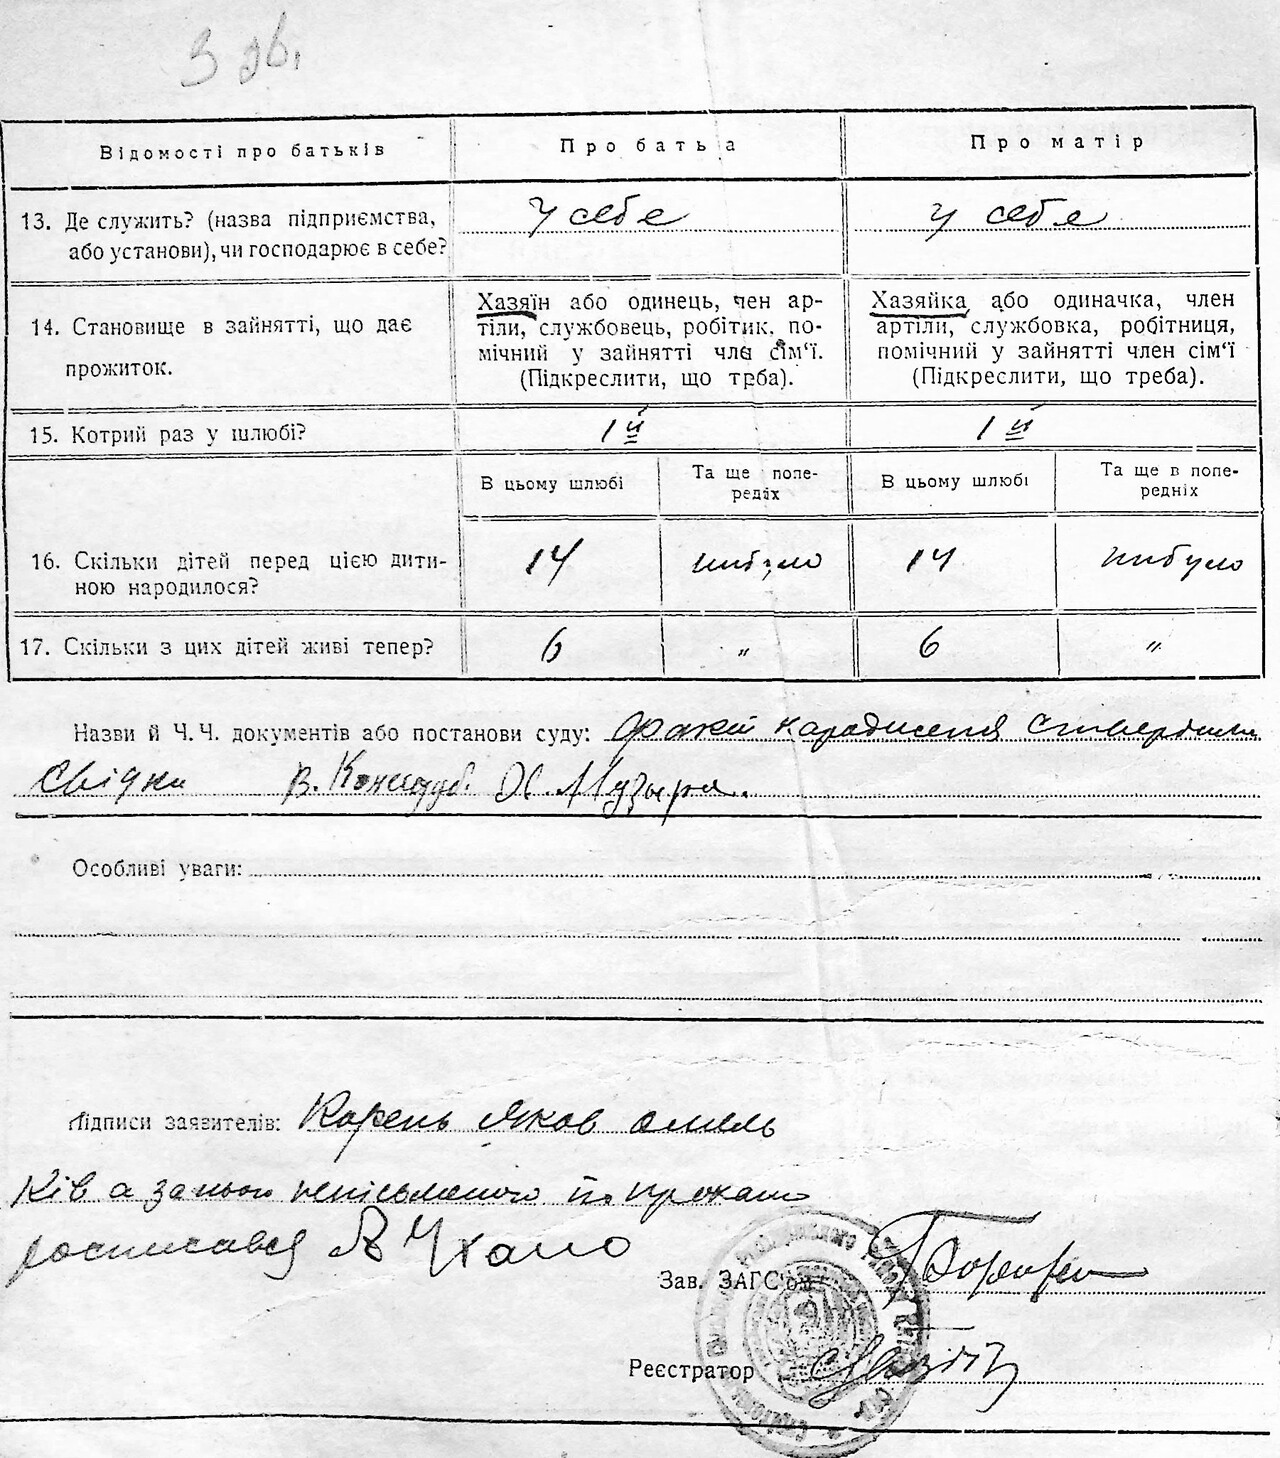 З дв.
Відомості про батьків
Про батьа
Про матір
13. Де служить? (назва підприємства, або установи), чи господарює в себе?
у себе
у себе
14. Становище в зайнятті, що дає прожиток.
Хазяїн або одинець, чен ар-
тіли, службовець, робітик, по-
мічний у зайнятті чле сім'ї.
(Підкреслити, що трба).
Хазяйка або одиначка, член
артіли, службовка, робітниця,
помічний у зайнятті член сім'ї
(Підкреслити, що треба).
15. Котрий раз у шлюбі?
1й
1й
В цьому шлюбі
Та ще попе-
редіх
В цьому шлюбі
Та ще в попе-
редніх
16. Скільки дітей перед цією дити-
ною народилося?
14
нибуло
14
нибуло
17. Скільки з цих дітей живі тепер?
6
"
6
"
Назви й Ч. Ч. документів або постанови суду: Факт народження ствердили
свідки В. Х. Музыря.
Особливі уваги:
Підписи заявителів: Корень Яков Омель
ків а за нього неписьменого по прохаю
росписавсь Я Ухано
Зав. ЗАГС'ом
Реєстратор